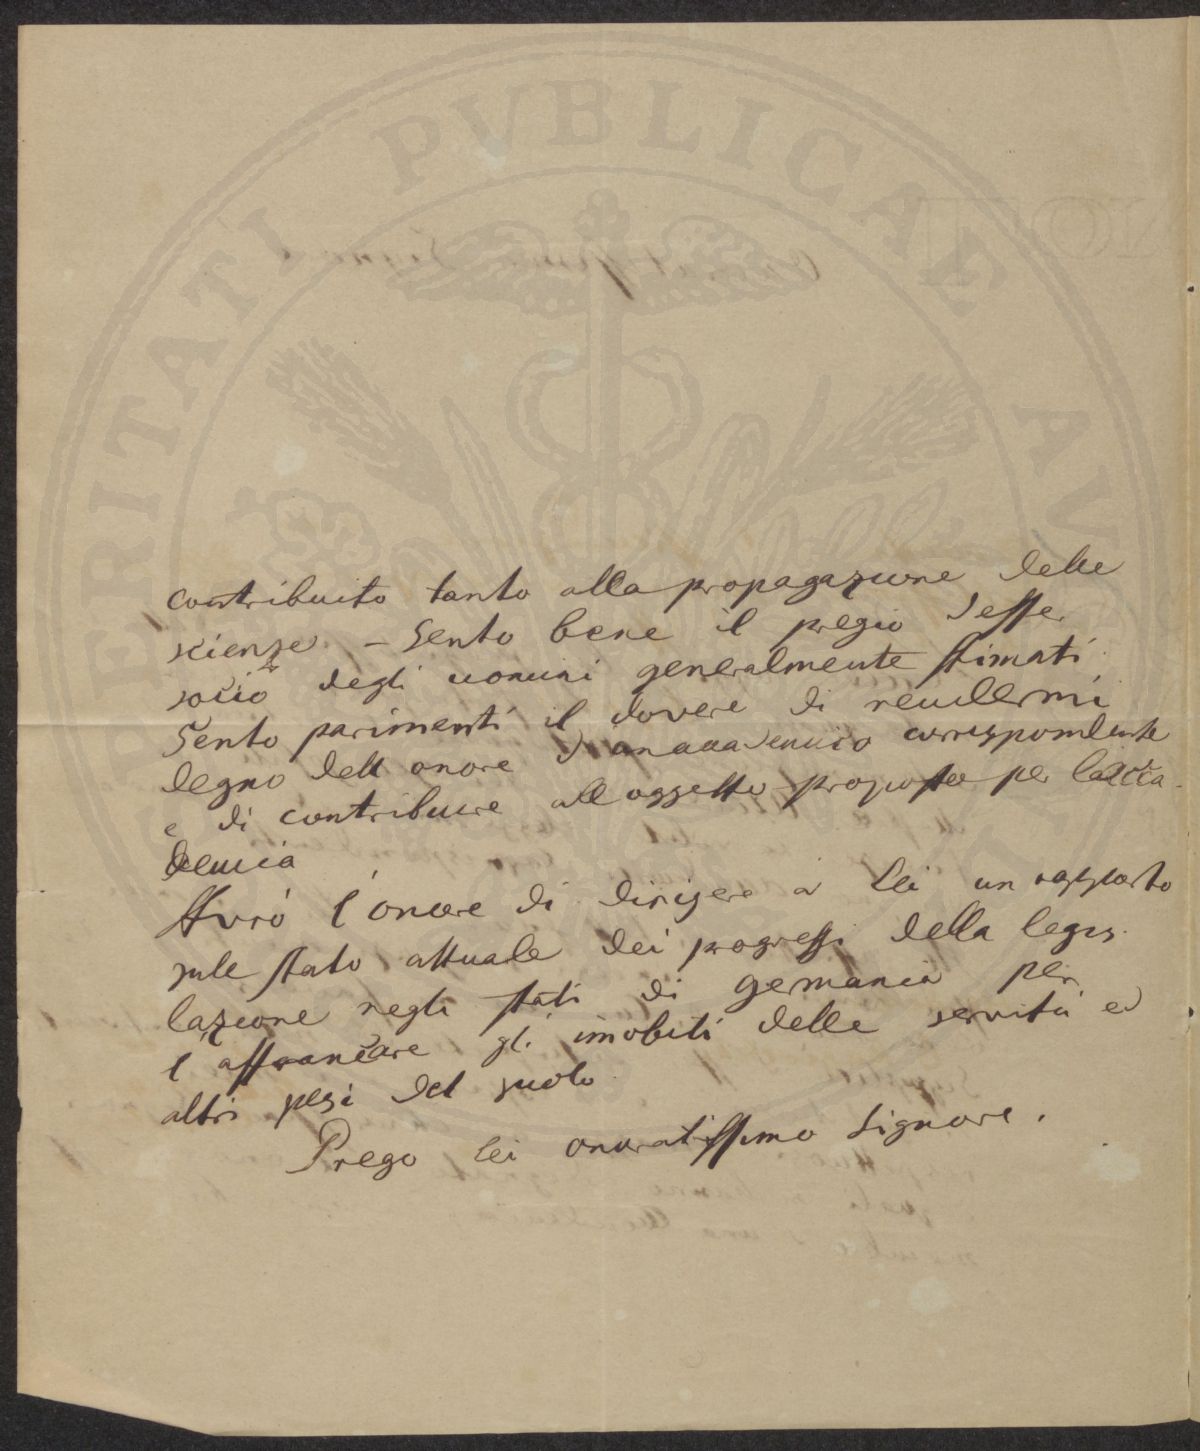 PROSPERITATI PVBLICAE AVGENDAE
contribuito tanto alla propagazione delle
scienze. – Sento bene il pregio d'esser
socio degli uomini generalmente stimati.
Sento parimenti il dovere di rendermi
degno dell onore d'an accademico correspondente
e di contribuire all oggetto proposto per l'acca-
demia
Avrò l'onore di dirigere a Lei un rapporto
sule stato attuale dei progressi della legis-
lazione negli stati di Germania per
l'affrancare gli imobili delle servitù ed
altri pesi del suolo.
Prego Lei onoratissimo Signore,